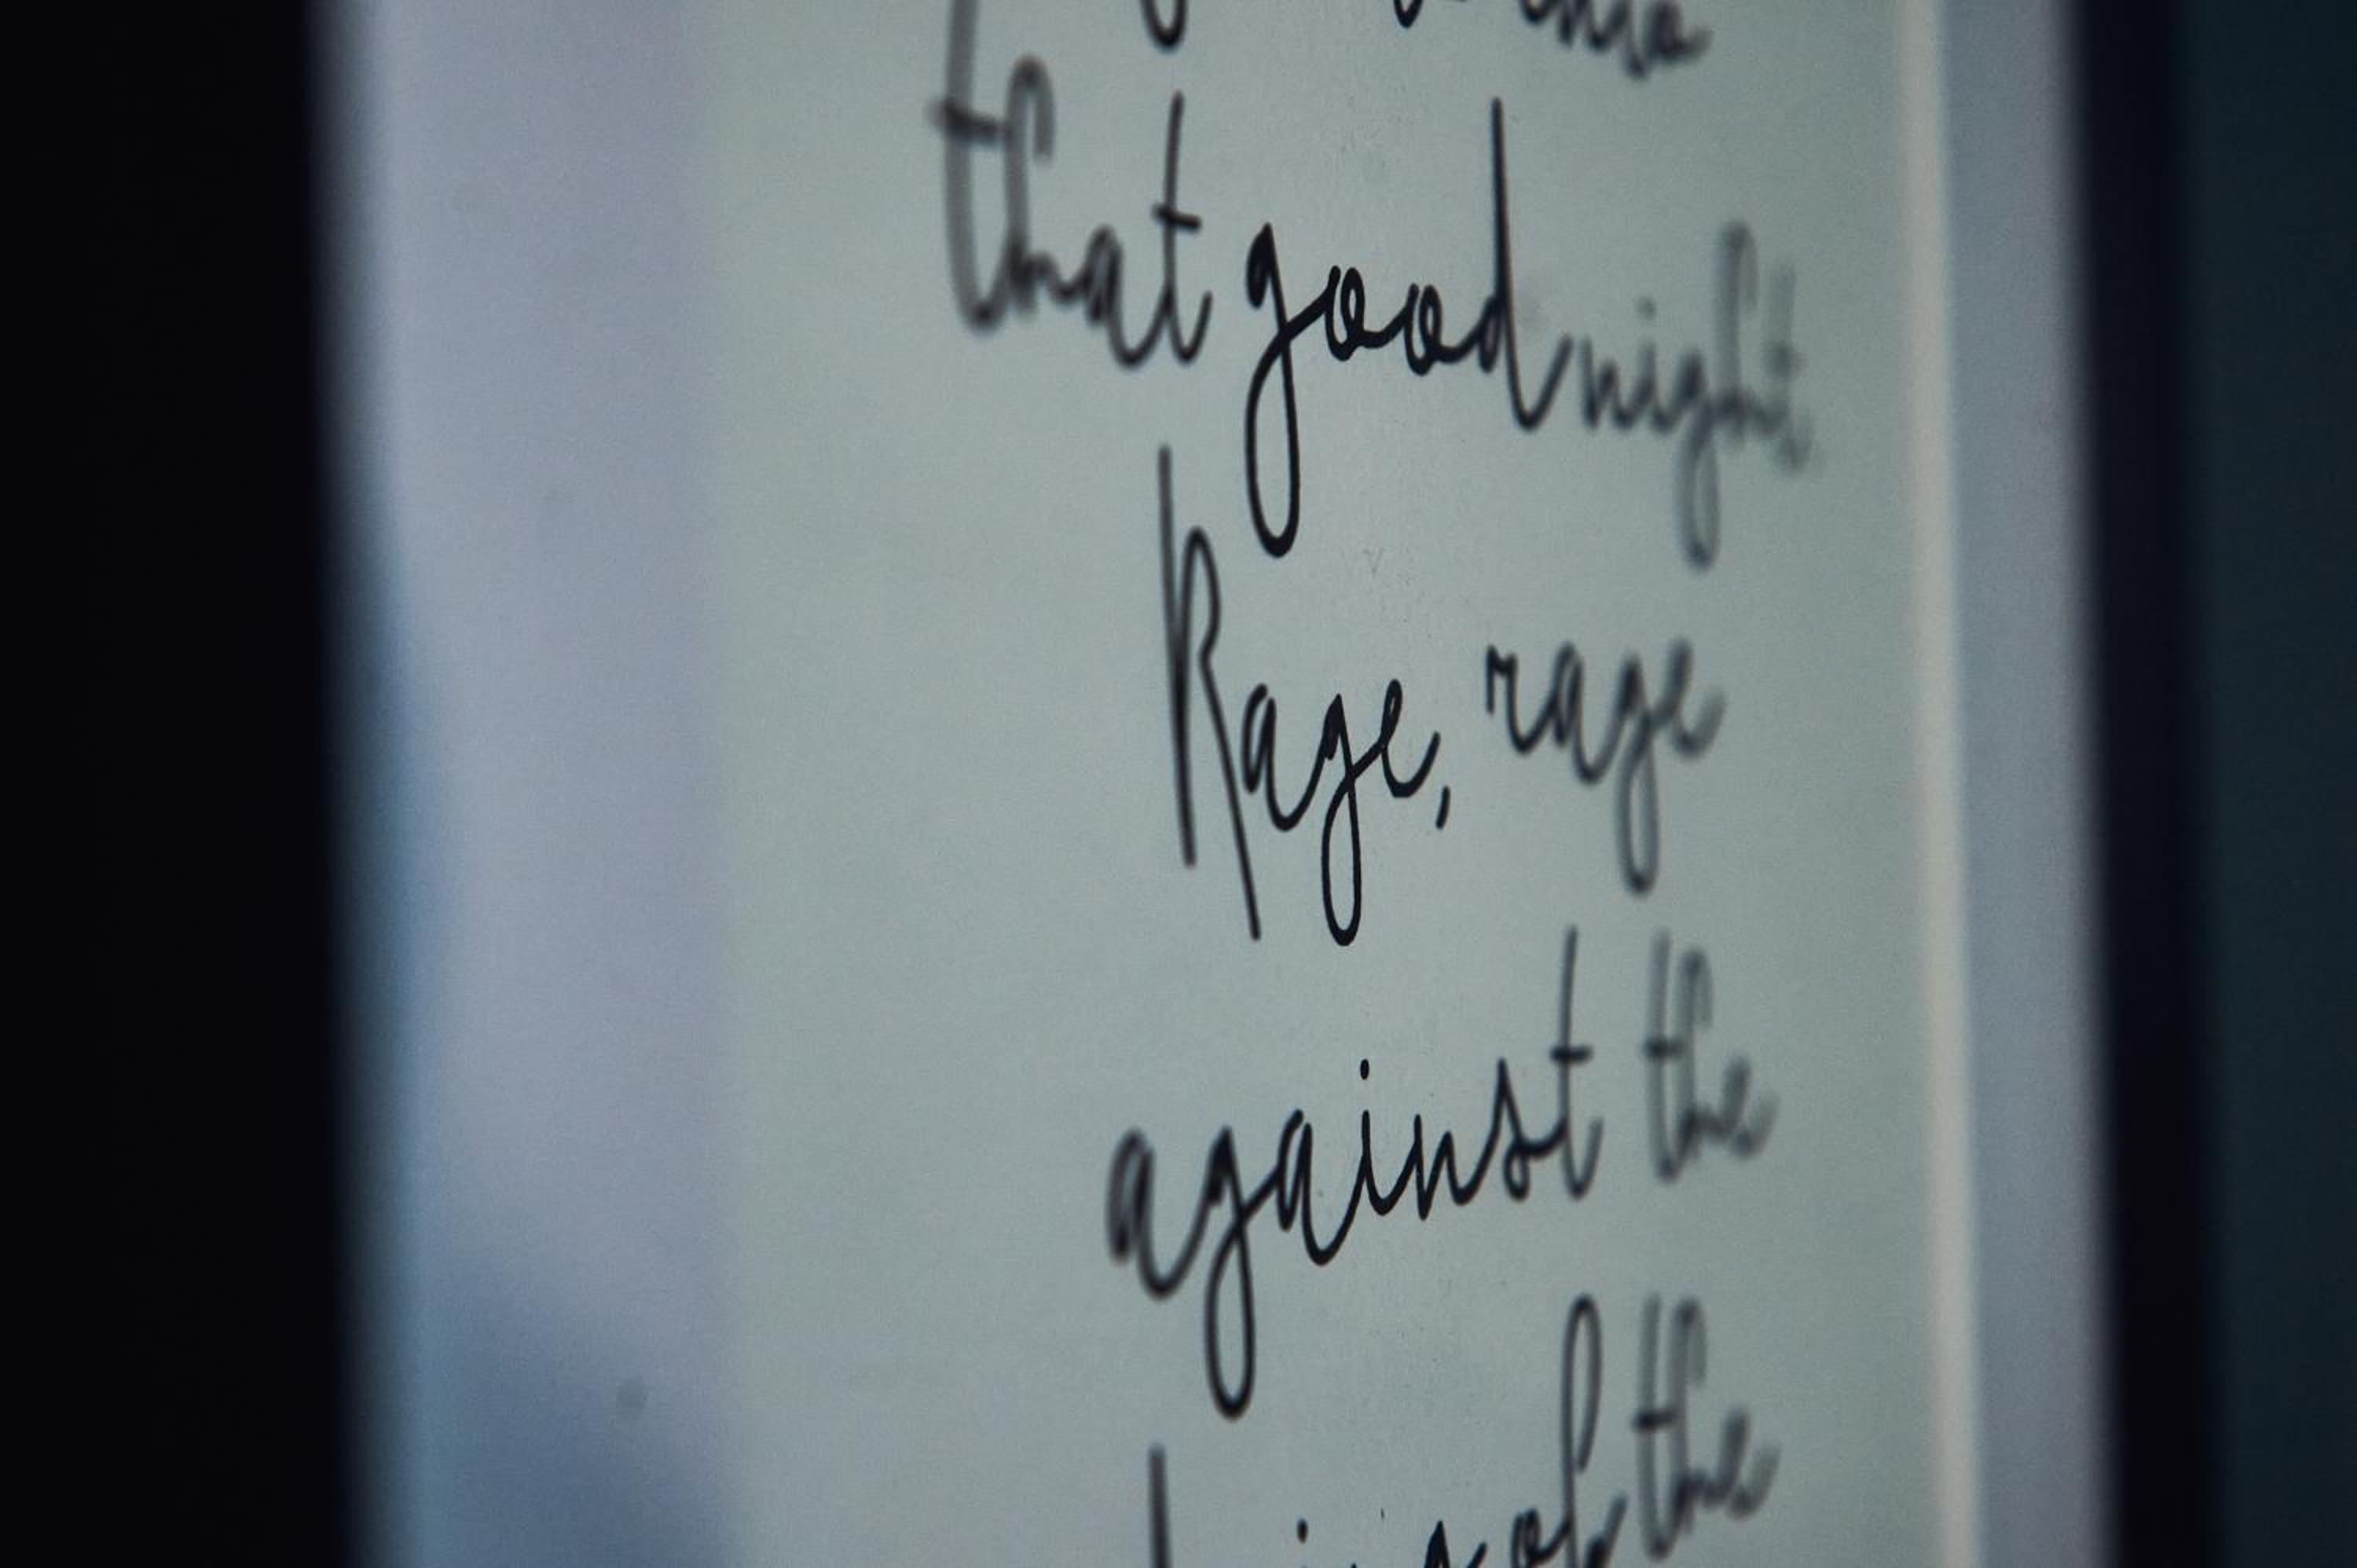 that good night.
Rage, rage
against the
of the